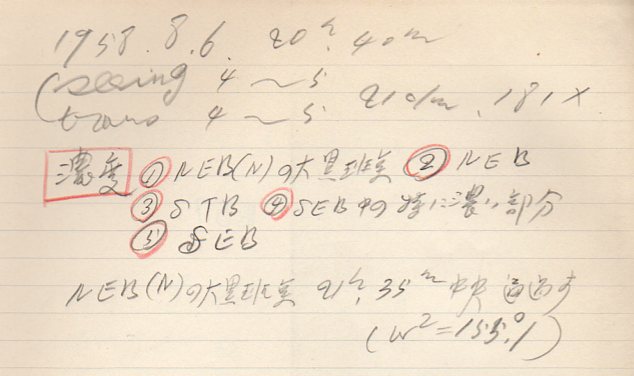 1958. 8. 6. 20h. 40m
(seeing 4〜5
trans 4〜5 21cm. 181×
濃度 ① NEB(N)の大黒斑点 ② NEB
③ STB ④ SEB中の特に濃い部分
⑤ SEB
NEB(N)の大黒斑点 21h. 35m 中央通過す
(ω²=155.°1)